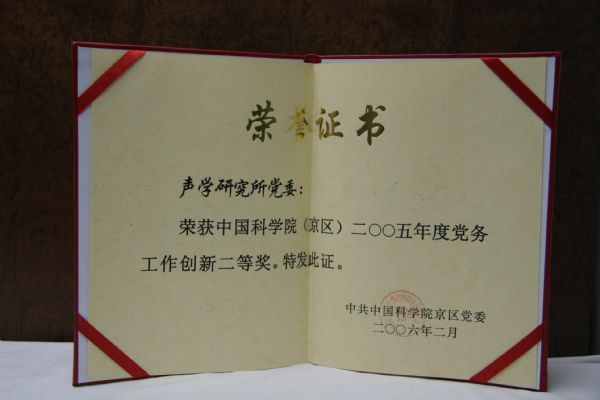 荣誉证书
声学研究所党委：
荣获中国科学院（京区）二〇〇五年度党务
工作创新二等奖。特发此证。
中共中国科学院京区党委
二〇〇六年二月